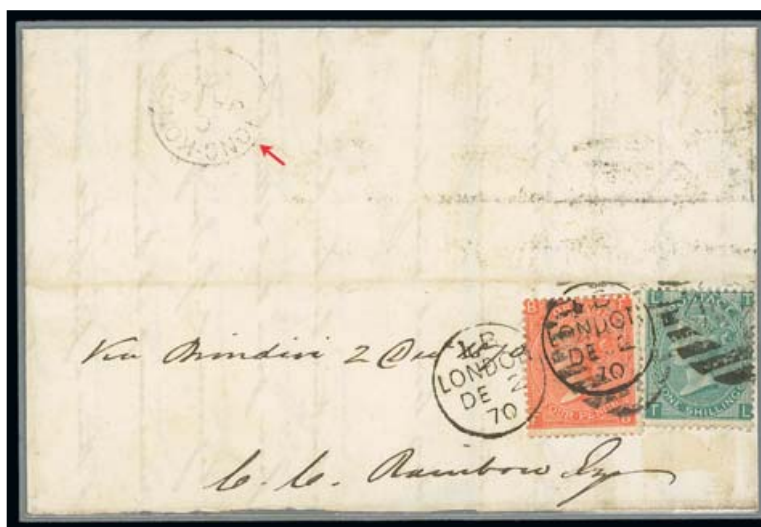 HONG-KONG
Via Brindisi 2 Dec
LONDON
DE 2
70
LONDON
DE 2
70
B
FOUR PENCE
B
L T
ONE SHILLING
T L
C. C. Rainbow Esq